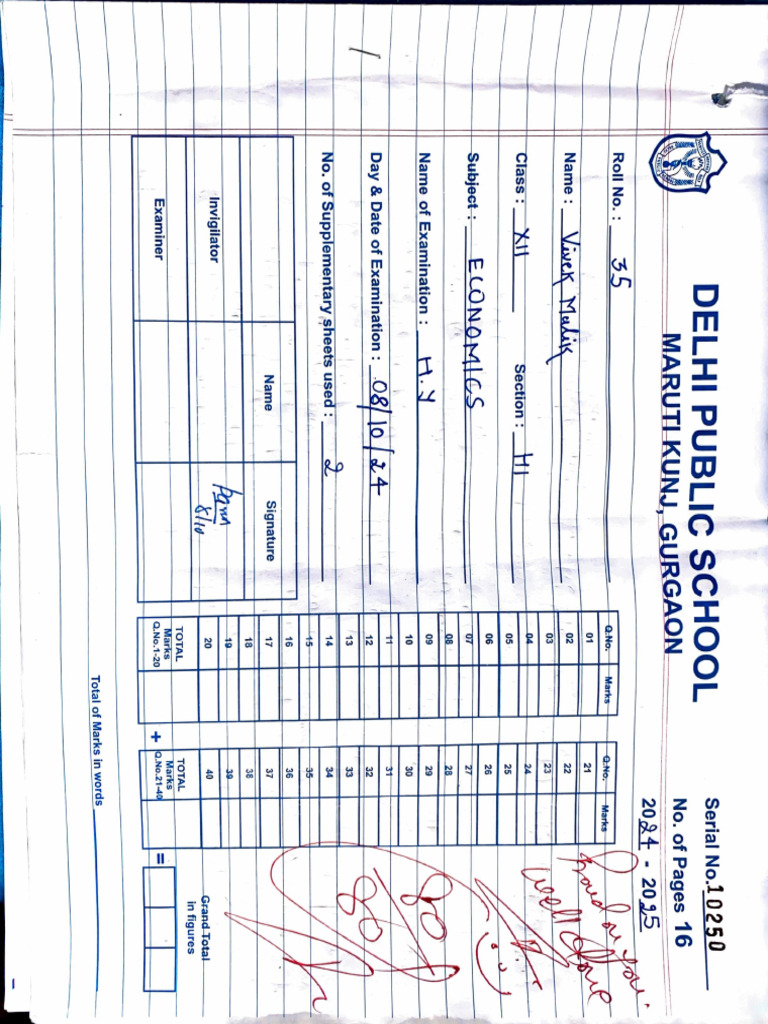 DELHI PUBLIC SCHOOL
MARUTI KUNJ, GURGAON
Serial No. 10250
No. of Pages 16
2024 - 2025
Roll No. : 35
Name : Vivek Malik
Class : XII Section : H1
Subject : ECONOMICS
Name of Examination : H.Y
Day & Date of Examination : 08/10/24
No. of Supplementary sheets used : 2
Name Signature
Invigilator 8/10
Examiner
Q.No. Marks Q.No. Marks
01 21
02 22
03 23
04 24
05 25
06 26
07 27
08 28
09 29
10 30
11 31
12 32
13 33
14 34
15 35
16 36
17 37
18 38
19 39
20 40
TOTAL Marks Q.No.1-20 + TOTAL Marks Q.No.21-40 =
Grand Total in figures
Proud on you.
well done
80
80
Total of Marks in words